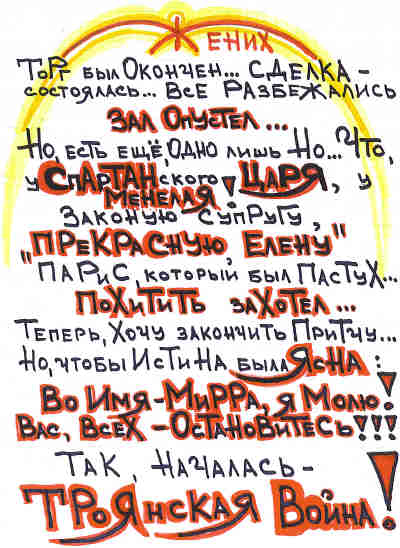 Жених
Торг был Окончен... Сделка -
состоялась... Все Разбежались
Зал Опустел...
Но, есть ещё, одно лишь Но... Что,
у Спартанского Царя, у
Менелая!
Законую Супругу,
"Прекрасную, Елену"
Парис, который был Пастух...
Похитить захотел...
Теперь, Хочу закончить Притчу...
Но, чтобы Истина была Ясна:
Во Имя - Мирра, я Молю!
Вас, Всех - Остановитесь!!!
Так, Началась -
Троянская Война!